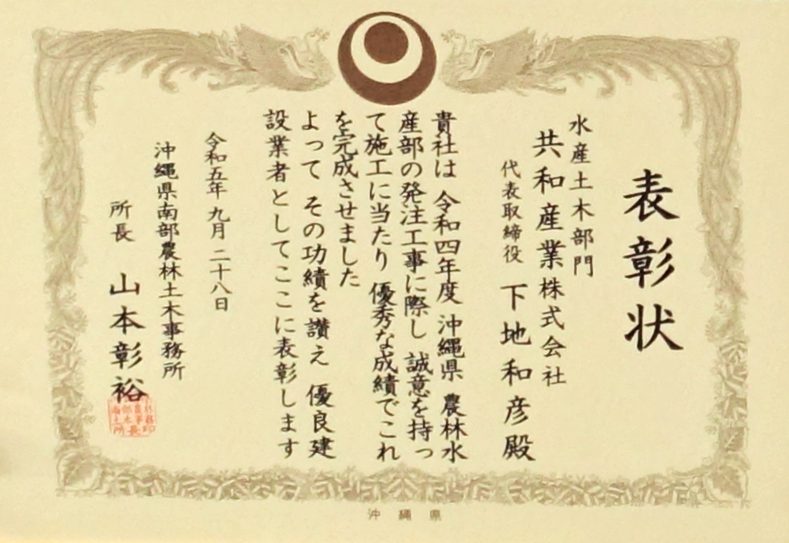 表彰状
水産土木部門
共和産業株式会社
代表取締役 下地和彦殿
貴社は 令和四年度 沖縄県 農林水
産部の発注工事に際し 誠意を持っ
て施工に当たり 優秀な成績でこれ
を完成させました
よって その功績を讃え 優良建
設業者としてここに表彰します
令和五年 九月 二十八日
沖縄県南部農林土木事務所
所長 山本彰裕
沖縄県